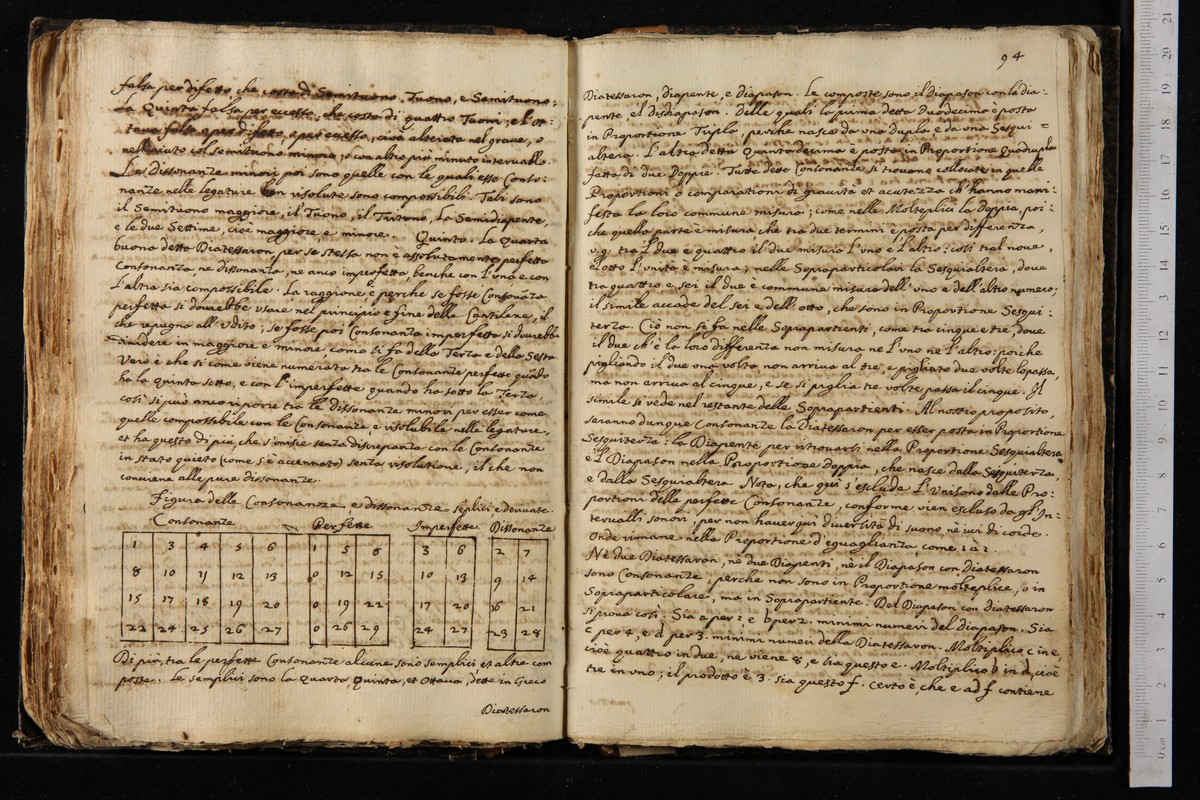 falsa per difetto, che costa di Semituono, Tuono, e Semituono:
La Quinta falsa per eccesso, che costa di quattro Tuoni; e l'ot-
tava falsa e per difetto, e per eccesso, cioè alterata nel grave, o
nell'acuto col semituono minore, o con altro più minuto intervallo.
Le Dissonanze minori poi sono quelle con le quali esse Conso-
nanze nelle legature ben risolute sono compossibili. Tali sono
il Semituono maggiore, il Tuono, il Tritono, la Semidiapente,
e le due Settime, cioè maggiore e minore. Quinto. La Quarta
buona detta Diatessaron, per se stessa non è assolutamente perfetta
Consonanza, ne dissonanza, ne anco imperfetta, benche con l'una e con
l'altra sia compossibile. La raggione è perche se fosse Consonãza
perfetta si dourebbe usare nel principio e fine delle Cantilene, il
che repugna all'udito; se fosse poi Consonanza imperfetta si dourebbe
dividere in maggiore e minore, come si fa della Terza e della Sesta
Vero è che si come viene numerata tra le Consonanze perfette quãdo
ha la Quinta sotto, e con l'imperfette quando ha sotto la Terza,
così si può anco riporre tra le dissonanze minori per esser come
quelle compossibile con le Consonanze e risolubile nelle legature,
et ha questo di più, che s'unisce senza discrepanza con le Consonanze
in stato quieto (come s'è accennato) senza risolutione, il che non
conviene alle pure dissonanze.
Figura delle Consonanze, e dissonanze sẽplici e derivate.
Consonanze Perfette Imperfette Dissonanze
1 3 4 5 6 1 5 8 3 6 2 7
8 10 11 12 13 0 12 15 10 13 9 14
15 17 18 19 20 0 19 22 17 20 16 21
22 24 25 26 27 0 26 29 24 27 23 28
Di più, tra le perfette Consonanze alcune sono semplici et altre com
poste. Le semplici sono la Quarta, Quinta, et Ottava, dette in Greco
Diatessaron
94
Diatessaron, diapente, e Diapason. Le composte sono il diapason con la dia-
pente, e'l disdiapason. Delle quali la prima detta Duodecima è posta
in Proportione Tripla, perche nasce da una dupla e da una Sesqui=
altera. L'altra detta Quintadecima è posta in Proportione Quadupla
fatta di due Doppie. Tutte dette Consonanze si trovano collocate in quelle
Proportioni o comparationi di gravità et acutezza ch'hanno mani-
festa la loro commune misura; come nelle Molteplici la Doppia, poi-
che quella parte è misura che tra due termini è posta per differenza,
v.g. tra l due e quattro il due misura l'uno e l'altro: così tra'l nove,
e l'otto l'unità è misura; nelle Sopraparticolari la Sesquialtera, dove
tra quattro e sei il due è commune misura dell'uno e dell'altro numero;
il simile accade del sei e dell'otto, che sono in Proportione Sesqui-
terza. Ciò non si fa nelle Soprapartienti, come tra cinque e tre, dove
il due ch'è la loro differenza non misura ne l'uno ne l'altro: poiche
pigliando il due una volta non arriva al tre, e pigliato due volte lo passa,
ma non arriva al cinque, e se si piglia tre volte passa il cinque. Il
simile si vede nel restante delle Soprapartienti. Al nostro proposito,
saranno dunque Consonanze la Diatessaron per esser posta in Proportione
Sesquiterza: la Diapente per ritrovarsi nella Proportione Sesquialtera
e'l Diapason nella Proportione doppia, che nasce dalla Sesquiterza,
e dalla Sesquialtera. Nota, che qui s'escluda l'unisono dalle Pro-
portioni delle perfette Consonanze, conforme vien escluso da gl'In-
tervalli sonori, per non havervi diversità di suono, nè ivi di corde.
Onde rimane nella Proportione d'eguaglianza come 1 a 1.
Nè due Diatessaron, nè due Diapenti, nè il Diapason con Diatessaron
sono Consonanze, perche non sono in Proportione molteplice, o in
Sopraparticolare, ma in Soprapartiente. Del Diapason con diatessaron
si prova così. Sia a per 1, e b per 2. minimi numeri del diapason. Sia
c per 4, e d per 3. minimi numeri della Diatessaron. Moltiplica c in b,
cioè quattro in due, ne viene 8, e sia questo e. Moltiplica d in a, cioè
tre in uno; il prodotto è 3. sia questo f. Certo è, che e ad f contiene